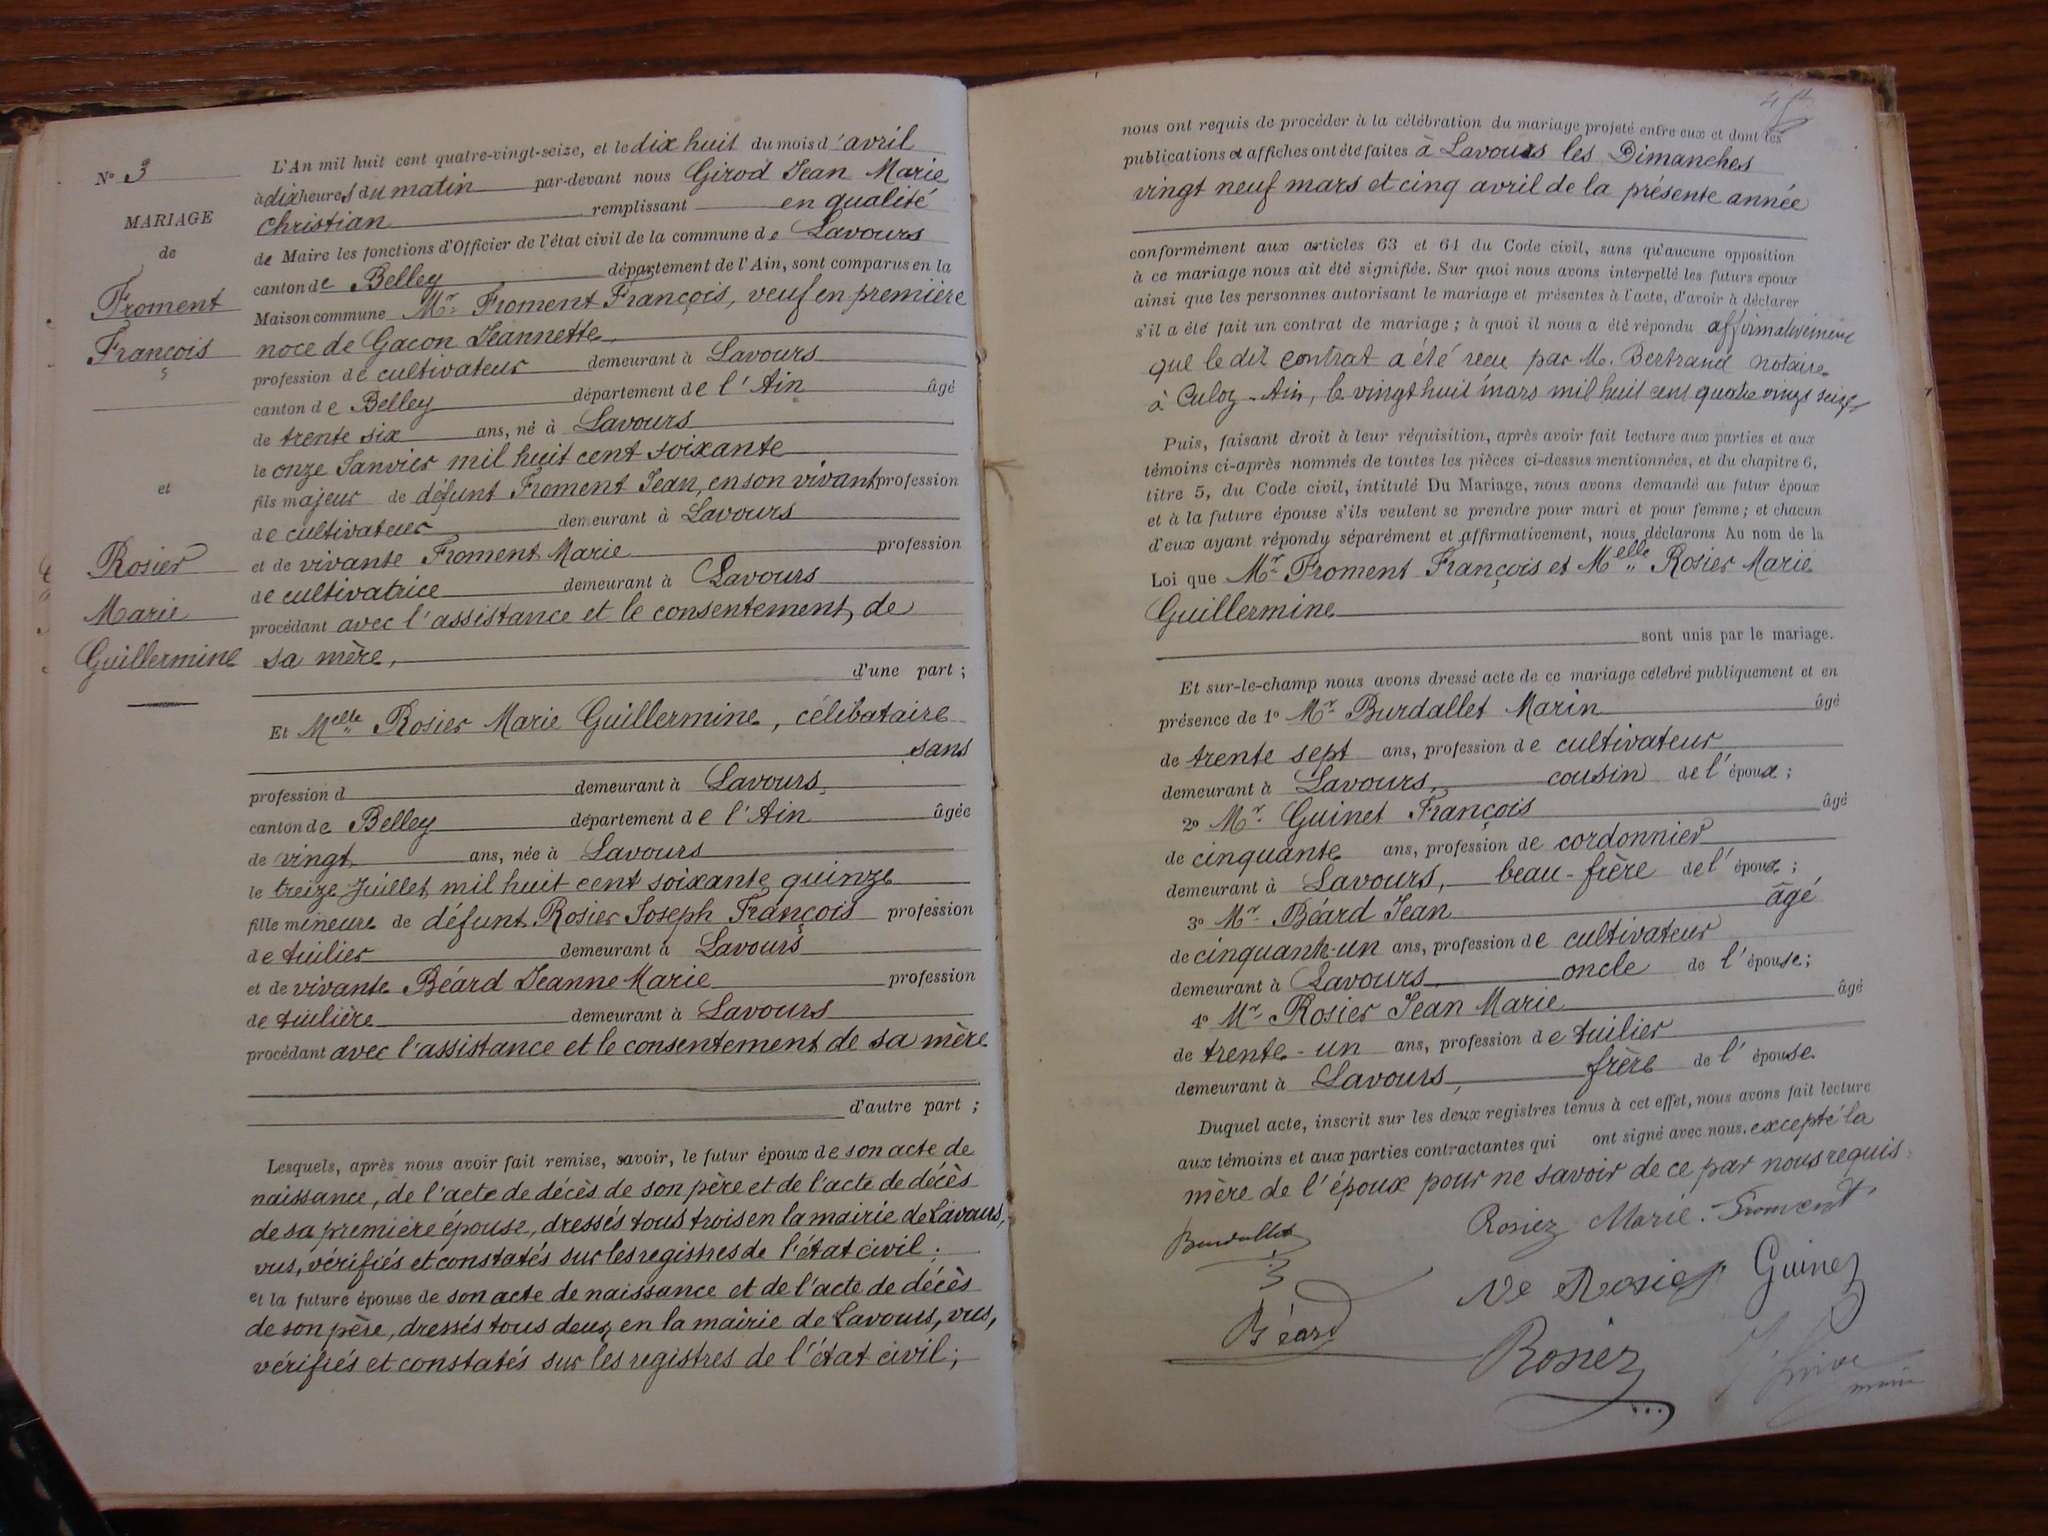 N° 3
MARIAGE
de
Froment
François
et
Rosier
Marie
Guillermine
L'An mil huit cent quatre-vingt-seize, et le dix huit du mois d'avril
à dix heures du matin par-devant nous Girod Jean Marie
Christian remplissant en qualité
de Maire les fonctions d'Officier de l'état civil de la commune de Lavours
canton de Belley département de l'Ain, sont comparus en la
Maison commune Mr Froment François, veuf en première
noce de Gacon Jeannette
profession de cultivateur demeurant à Lavours
canton de Belley département de l'Ain âgé
de trente six ans, né à Lavours
le onze Janvier mil huit cent soixante
fils majeur de défunt Froment Jean, en son vivant profession
de cultivateur demeurant à Lavours
et de vivante Froment Marie profession
de cultivatrice demeurant à Lavours
procédant avec l'assistance et le consentement de
sa mère,
d'une part ;
Et Melle Rosier Marie Guillermine, célibataire
sans
profession d demeurant à Lavours,
canton de Belley département de l'Ain âgée
de vingt ans, née à Lavours
le treize Juillet mil huit cent soixante quinze
fille mineure de défunt Rosier Joseph François profession
de tuilier demeurant à Lavours
et de vivante Béard Jeanne Marie profession
de tuilière demeurant à Lavours
procédant avec l'assistance et le consentement de sa mère
d'autre part ;
Lesquels, après nous avoir fait remise, savoir, le futur époux de son acte de
naissance, de l'acte de décès de son père et de l'acte de décès
de sa première épouse, dressés tous trois en la mairie de Lavours,
vus, vérifiés et constatés sur les registres de l'état civil ;
et la future épouse de son acte de naissance et de l'acte de décès
de son père, dressés tous deux en la mairie de Lavours, vus,
vérifiés et constatés sur les registres de l'état civil ;
nous ont requis de procéder à la célébration du mariage projeté entre eux et dont les
publications et affiches ont été faites à Lavours les Dimanches
vingt neuf mars et cinq avril de la présente année
conformément aux articles 63 et 64 du Code civil, sans qu'aucune opposition
à ce mariage nous ait été signifiée. Sur quoi nous avons interpellé les futurs époux
ainsi que les personnes autorisant le mariage et présentes à l'acte, d'avoir à déclarer
s'il a été fait un contrat de mariage ; à quoi il nous a été répondu affirmativement
que le dit contrat a été reçu par M. Bertrand notaire
à Culoz - Ain, le vingt huit mars mil huit cent quatre vingt seize
Puis, faisant droit à leur réquisition, après avoir fait lecture aux parties et aux
témoins ci-après nommés de toutes les pièces ci-dessus mentionnées, et du chapitre 6,
titre 5, du Code civil, intitulé Du Mariage, nous avons demandé au futur époux
et à la future épouse s'ils veulent se prendre pour mari et pour femme ; et chacun
d'eux ayant répondu séparément et affirmativement, nous déclarons Au nom de la
Loi que Mr Froment François et Melle Rosier Marie
Guillermine
sont unis par le mariage.
Et sur-le-champ nous avons dressé acte de ce mariage célébré publiquement et en
présence de 1° Mr Burdallet Marin âgé
de trente sept ans, profession de cultivateur
demeurant à Lavours, cousin de l'époux ;
2° Mr Guinet François âgé
de cinquante ans, profession de cordonnier
demeurant à Lavours, beau-frère de l'époux ;
3° Mr Béard Jean âgé
de cinquante-un ans, profession de cultivateur
demeurant à Lavours, oncle de l'épouse ;
4° Mr Rosier Jean Marie âgé
de trente-un ans, profession de tuilier
demeurant à Lavours, frère de l'épouse.
Duquel acte, inscrit sur les deux registres tenus à cet effet, nous avons fait lecture
aux témoins et aux parties contractantes qui ont signé avec nous, excepté la
mère de l'époux pour ne savoir de ce par nous requis.
Rosier Marie. Froment
Burdallet
Ve Rosier Guinet
Béard
Rosier